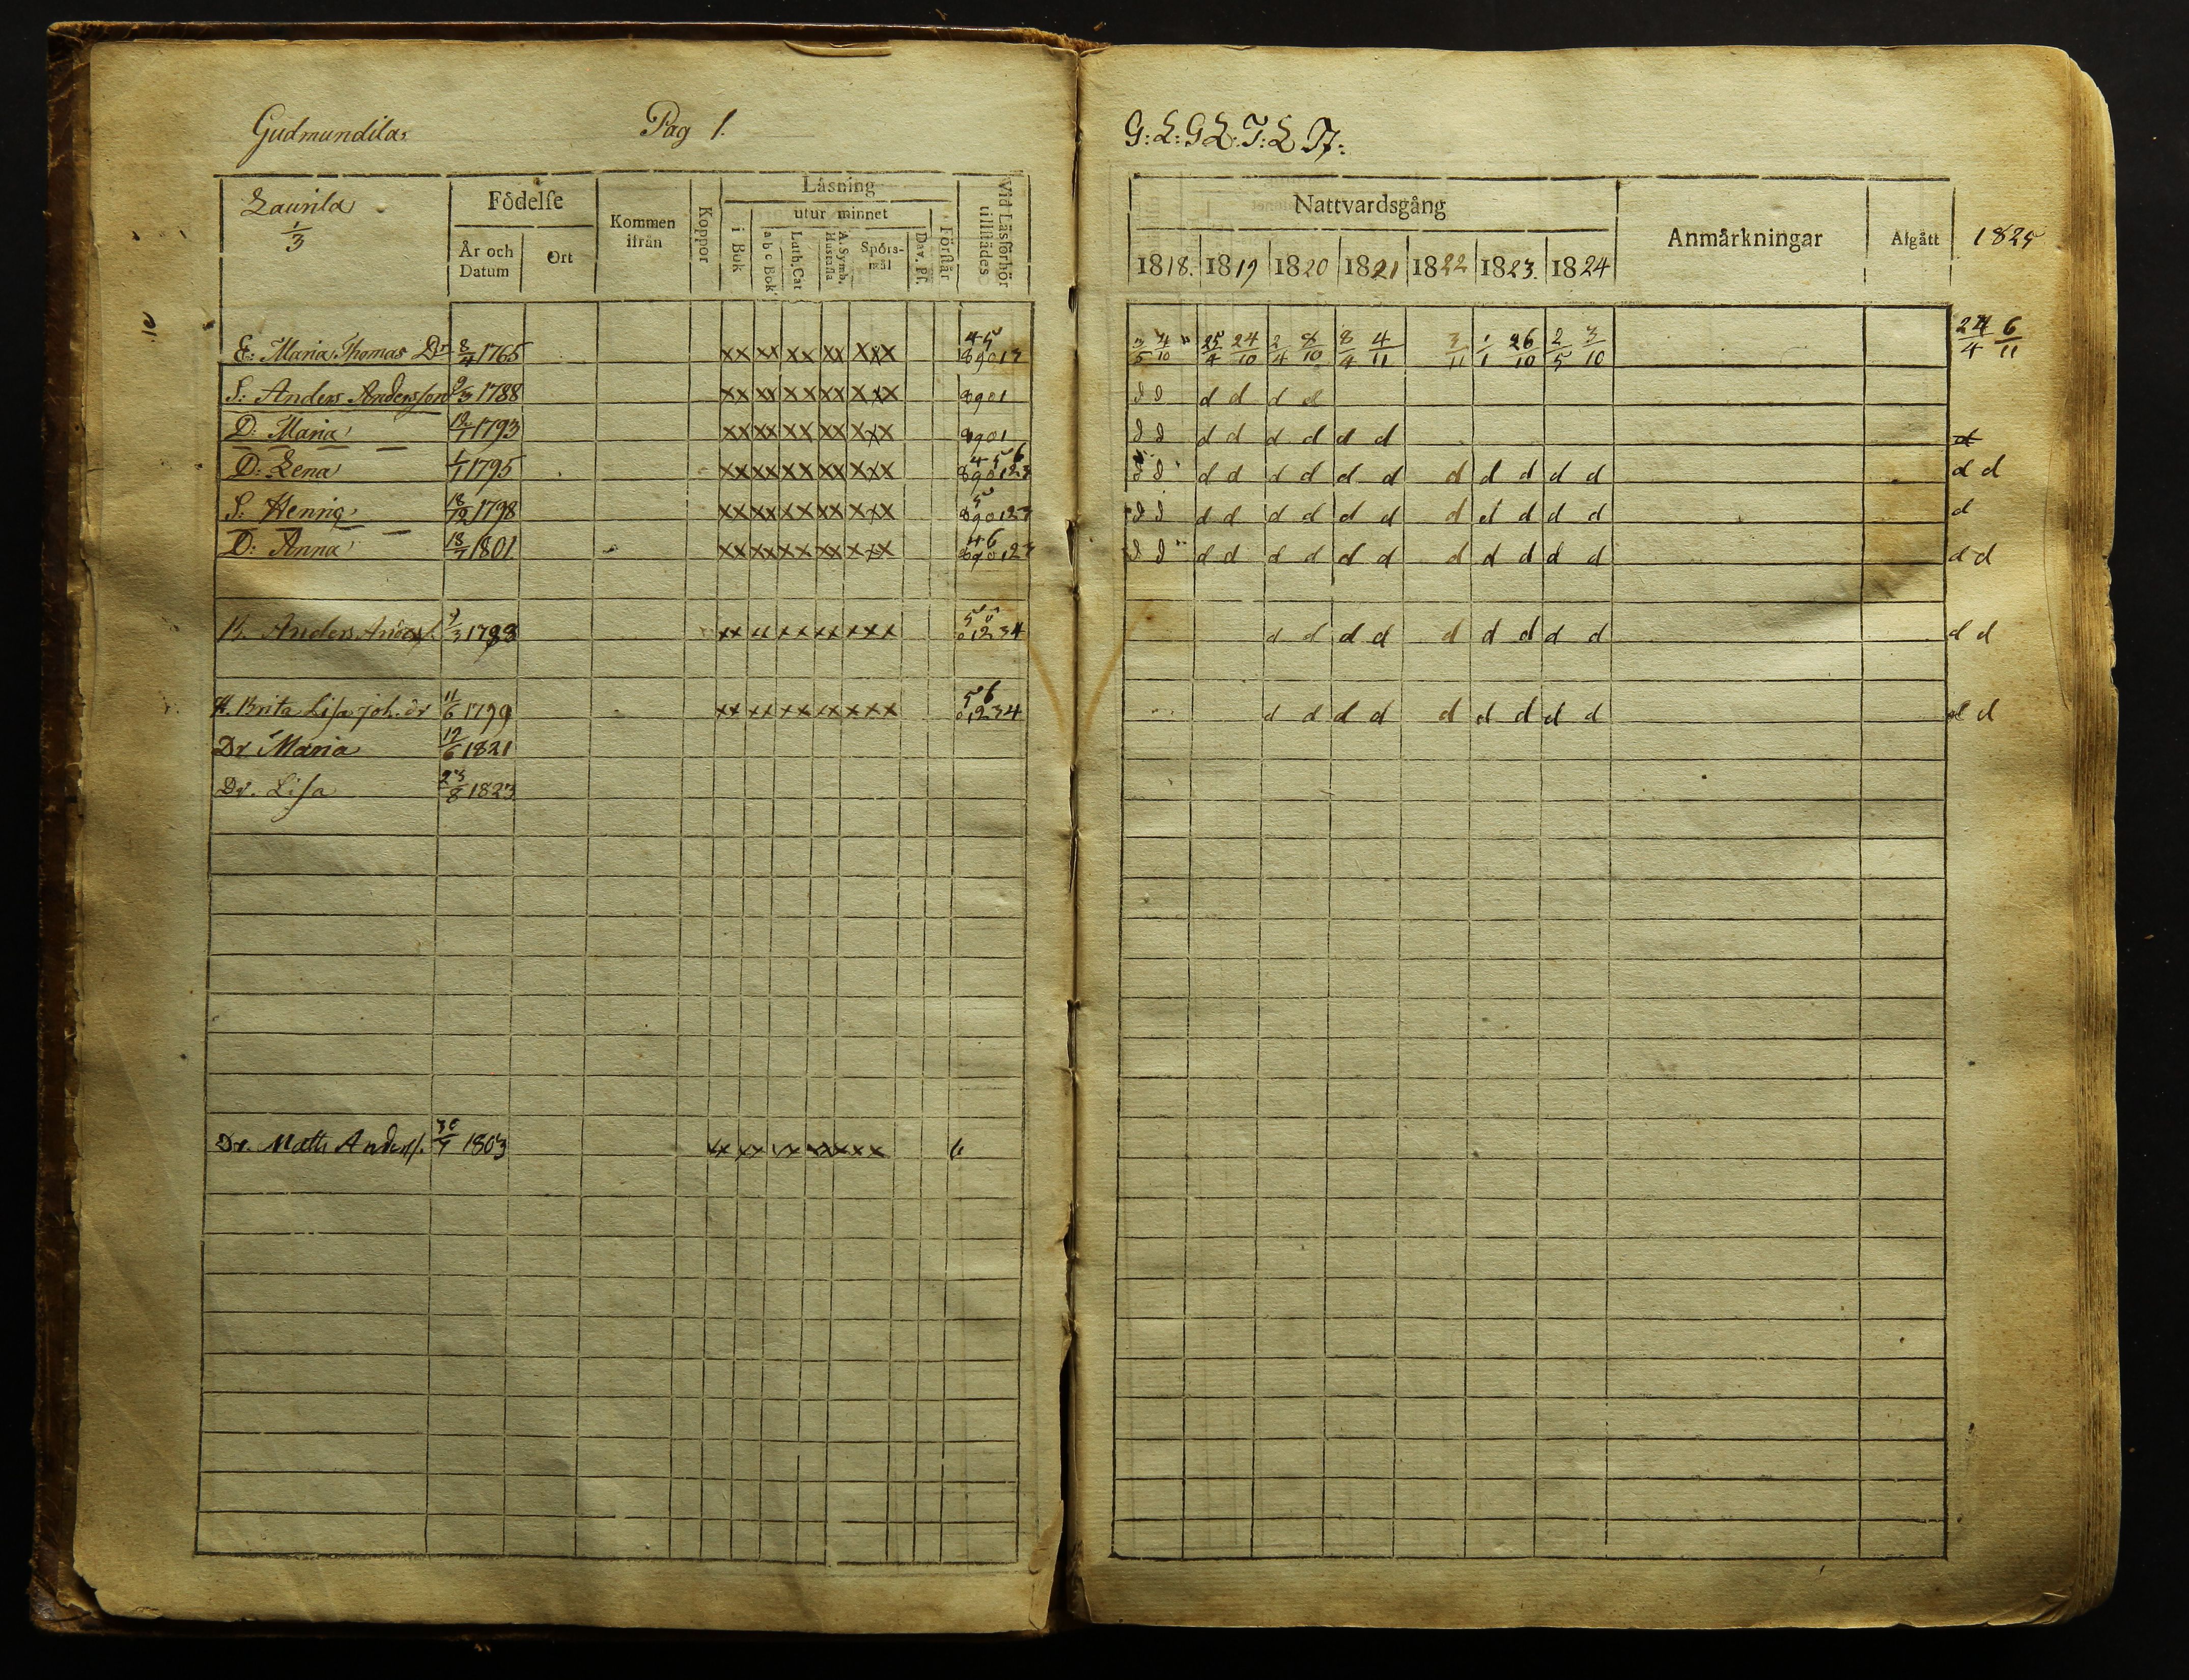 Gudmundila. Pag 1.
Laurila
1/3
Födelse
År och Datum
Ort
Kommen ifrån
Koppor
Läsning
utur minnet
i Bok
a b c Bok
Luth. Cat
A. Symb. Hustafla
Spörs-mål
Dav. Ps.
Förstår
Vid Läsförhör tillstädes
E: Maria Thomas Dr 8/4 1765 xx xx xx xx xxx 45 89013
S: Anders Andersson 9/3 1788 xx xx xx xx xxx 8901
D: Maria 12/7 1793 xx xx xx xx xxx 8901
D: Lena 1/1 1795 xx xx xx xx xxx 456 890123
S: Henric 18/12 1798 xx xx xx xx xxx 5 890123
D: Anna 18/7 1801 xx xx xx xx xxx 46 890123
B. Anders 9/3 xx xx xx xx xxx 01234
H. Brita Lisa Joh. dr 11/6 1799 xx xx xx xx xxx 56 01234
Dr Maria 12/6 1821
Dr. Lisa 23/8 1823
Dr. Matts Anders. 30/7 1803 xx xx xx xx xxx 6
G: L: G L: T: L
Nattvardsgång
Anmärkningar
Afgått
1825
1818. 1819 1820 1821 1822 1823. 1824
3/5 4/10 25/4 24/10 2/4 8/10 8/4 4/11 3/11 1/1 26/10 2/5 3/10 24/4 6/11
d d d d d d
d d d d d d d d d
d d d d d d d d d d d d d d d
d d d d d d d d d d d d d d
d d d d d d d d d d d d d d d
d d d d d d d d d d d
d d d d d d d d d d d